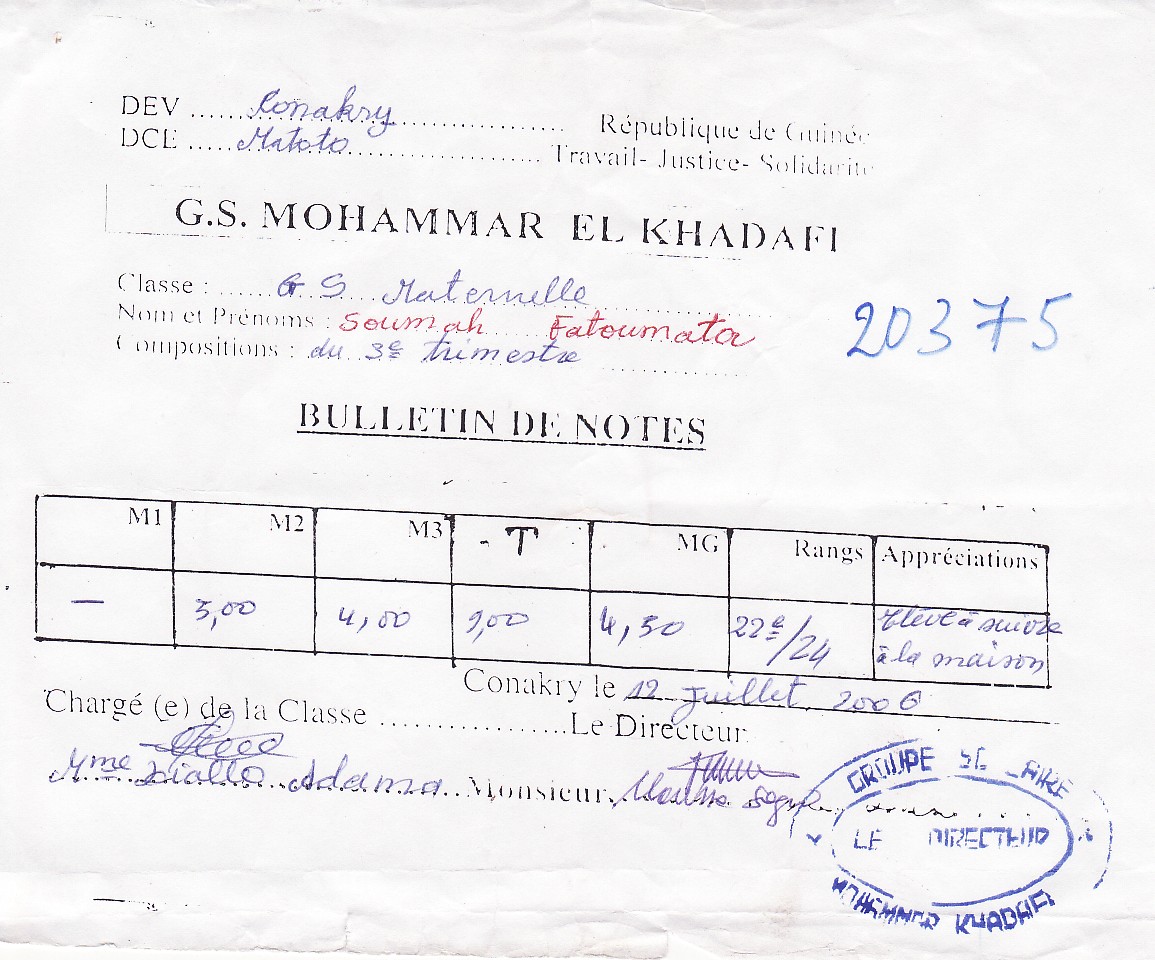 DEV ..... Conakry ..............................
République de Guinée
DCE ..... Matoto ..............................
Travail- Justice- Solidarité
G.S. MOHAMMAR EL KHADAFI
Classe : ..... G S Maternelle
Nom et Prénoms : Soumah Fatoumata
Compositions : du 3e trimestre
20375
BULLETIN DE NOTES
M1 M2 M3 T MG Rangs Appréciations
— 5,00 4,00 9,00 4,50 22e/24 Elève à suivre
à la maison
Conakry le 12 juillet 2006
Chargé (e) de la Classe ....................Le Directeur
Mme Diallo Adama Monsieur
GROUPE SC LAIRE
LE DIRECTEUR
MOHAMMAR KHADAFI